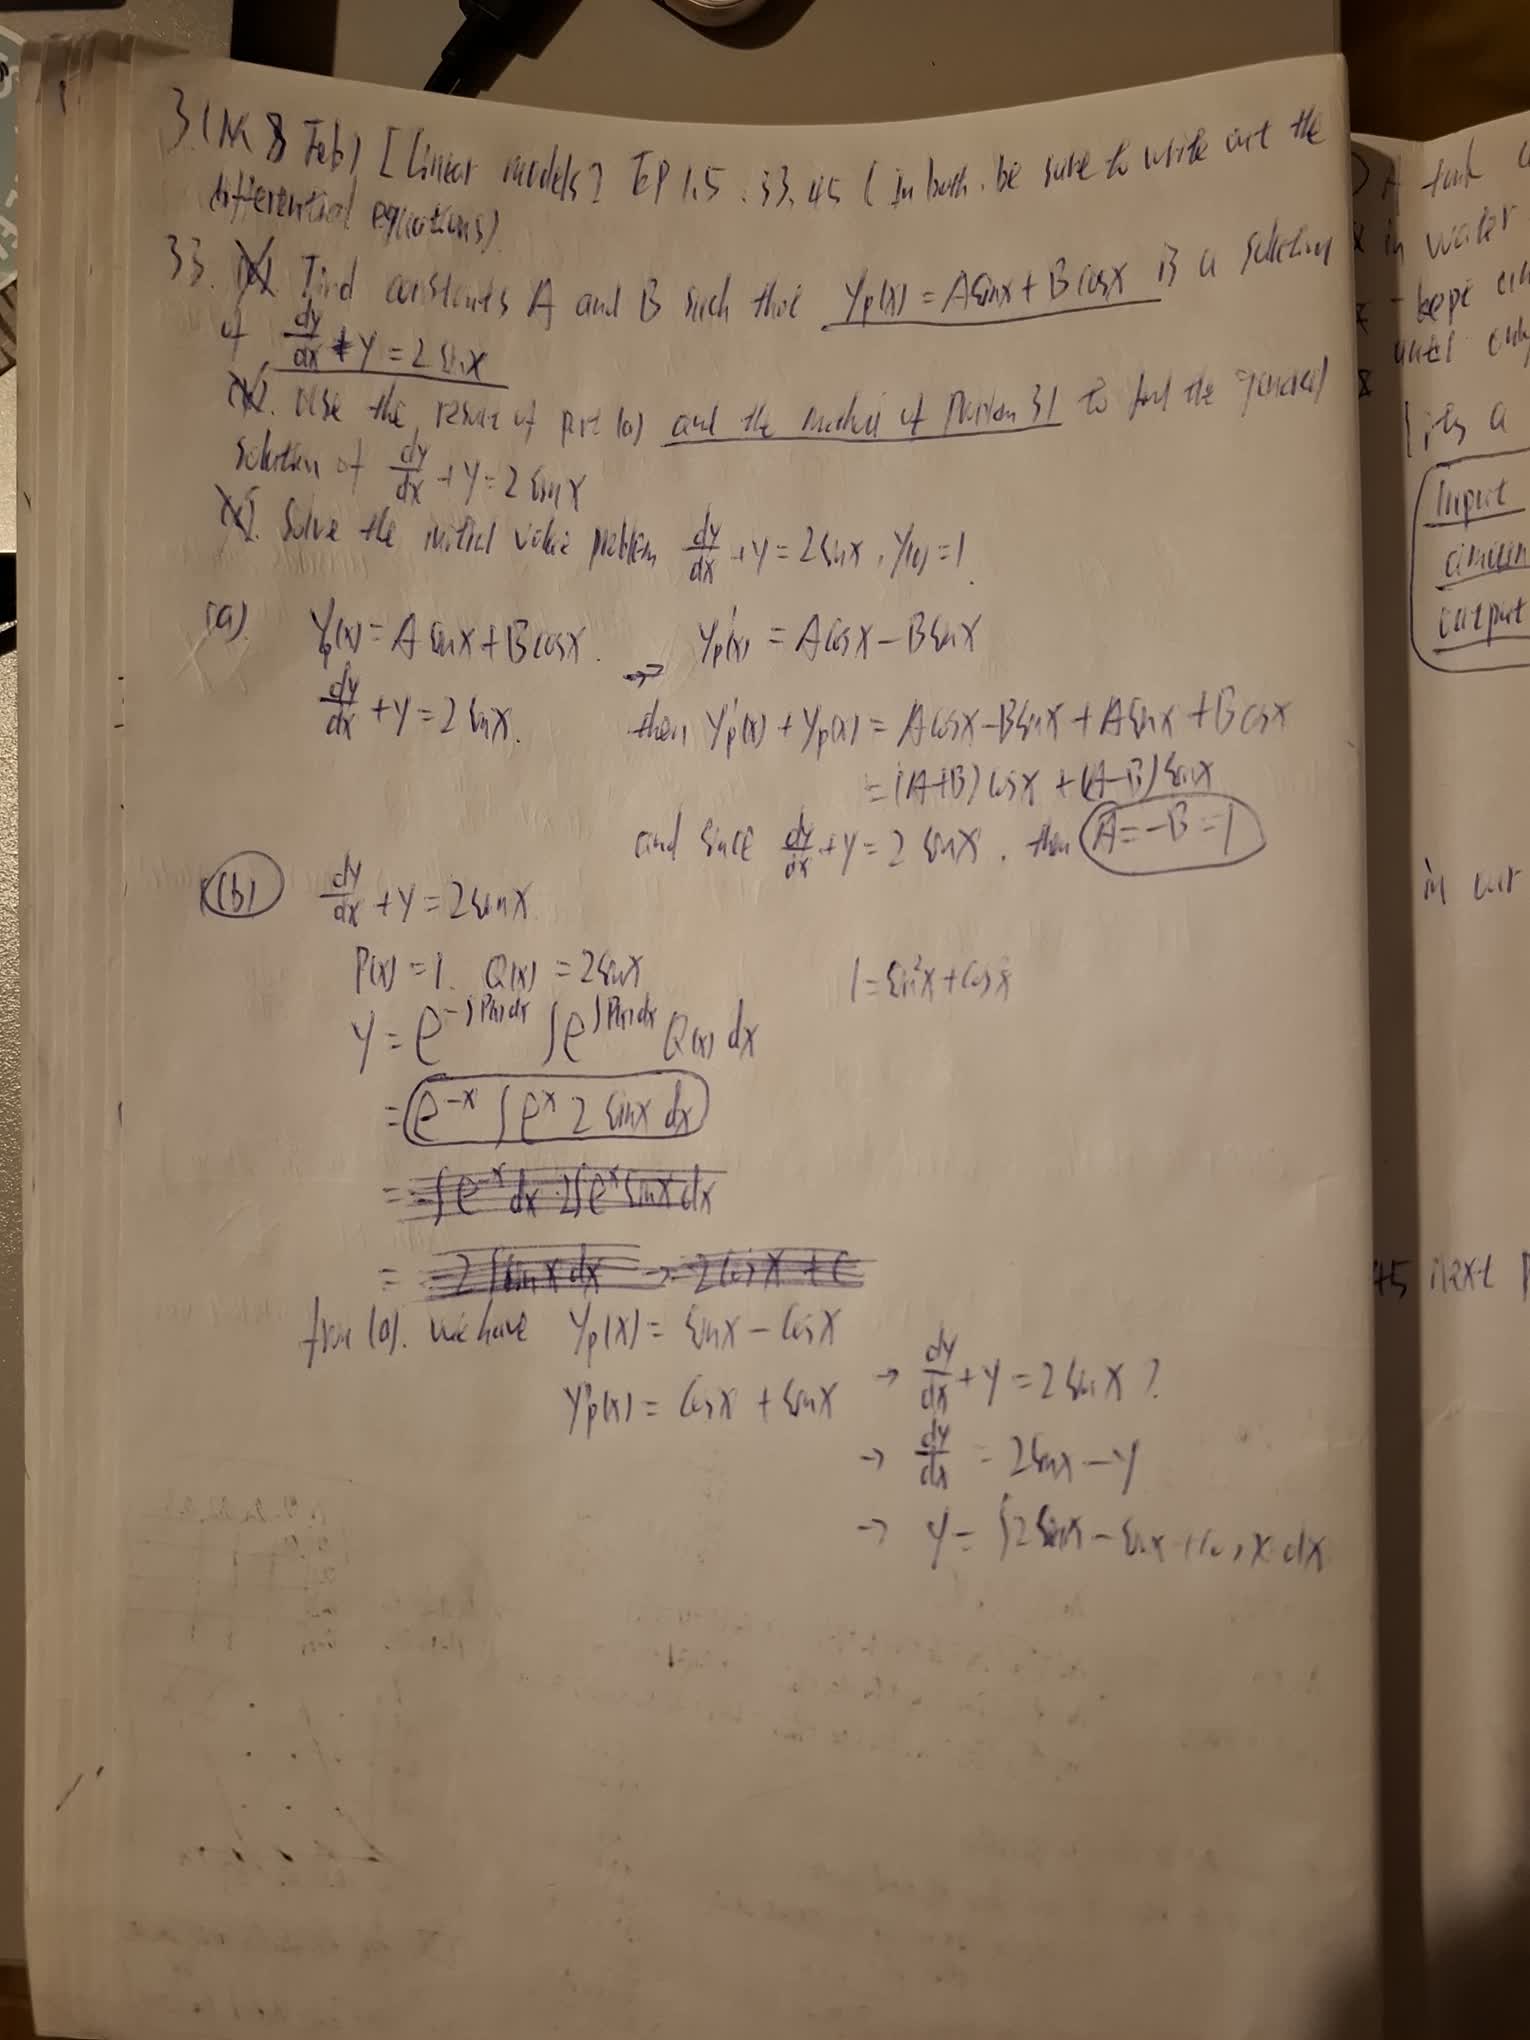 3. (M 8 Feb) [Linear models] TEP 1.5 : 33, 45 (In both, be sure to write out the
differential equations)
33. Find constants A and B such that yp(x) = A sinx + B cosx is a solution
of dy/dx + y = 2 sinx
Use the result of part (a) and the method of Problem 31 to find the general
solution of dy/dx + y = 2 sinx
Solve the initial value problem dy/dx + y = 2 sinx, y(0) = 1.
(a). yp(x) = A sinx + B cosx. → yp'(x) = A cosx − B sinx
dy/dx + y = 2 sinx. then yp'(x) + yp(x) = A cosx − B sinx + A sinx + B cosx
= (A+B) cosx + (A−B) sinx
and since dy/dx + y = 2 sinx, then A = −B = 1
(b) dy/dx + y = 2 sinx
P(x) = 1. Q(x) = 2 sinx
1 = sin²x + cos²x
y = e^−∫P(x)dx ∫e^∫P(x)dx Q(x) dx
= e^−x ∫e^x 2 sinx dx
= −∫e^−x dx · 2∫e^x sinx dx
= −2∫sinx dx → −2cosx + C
from (a). we have yp(x) = sinx − cosx
yp'(x) = cosx + sinx → dy/dx + y = 2 sinx ?
→ dy/dx = 2 sinx − y
→ y = ∫2 sinx − sinx + cosx dx
A tank
in water
kept
until only
its a
Input
amoun
output
in our
45 next p